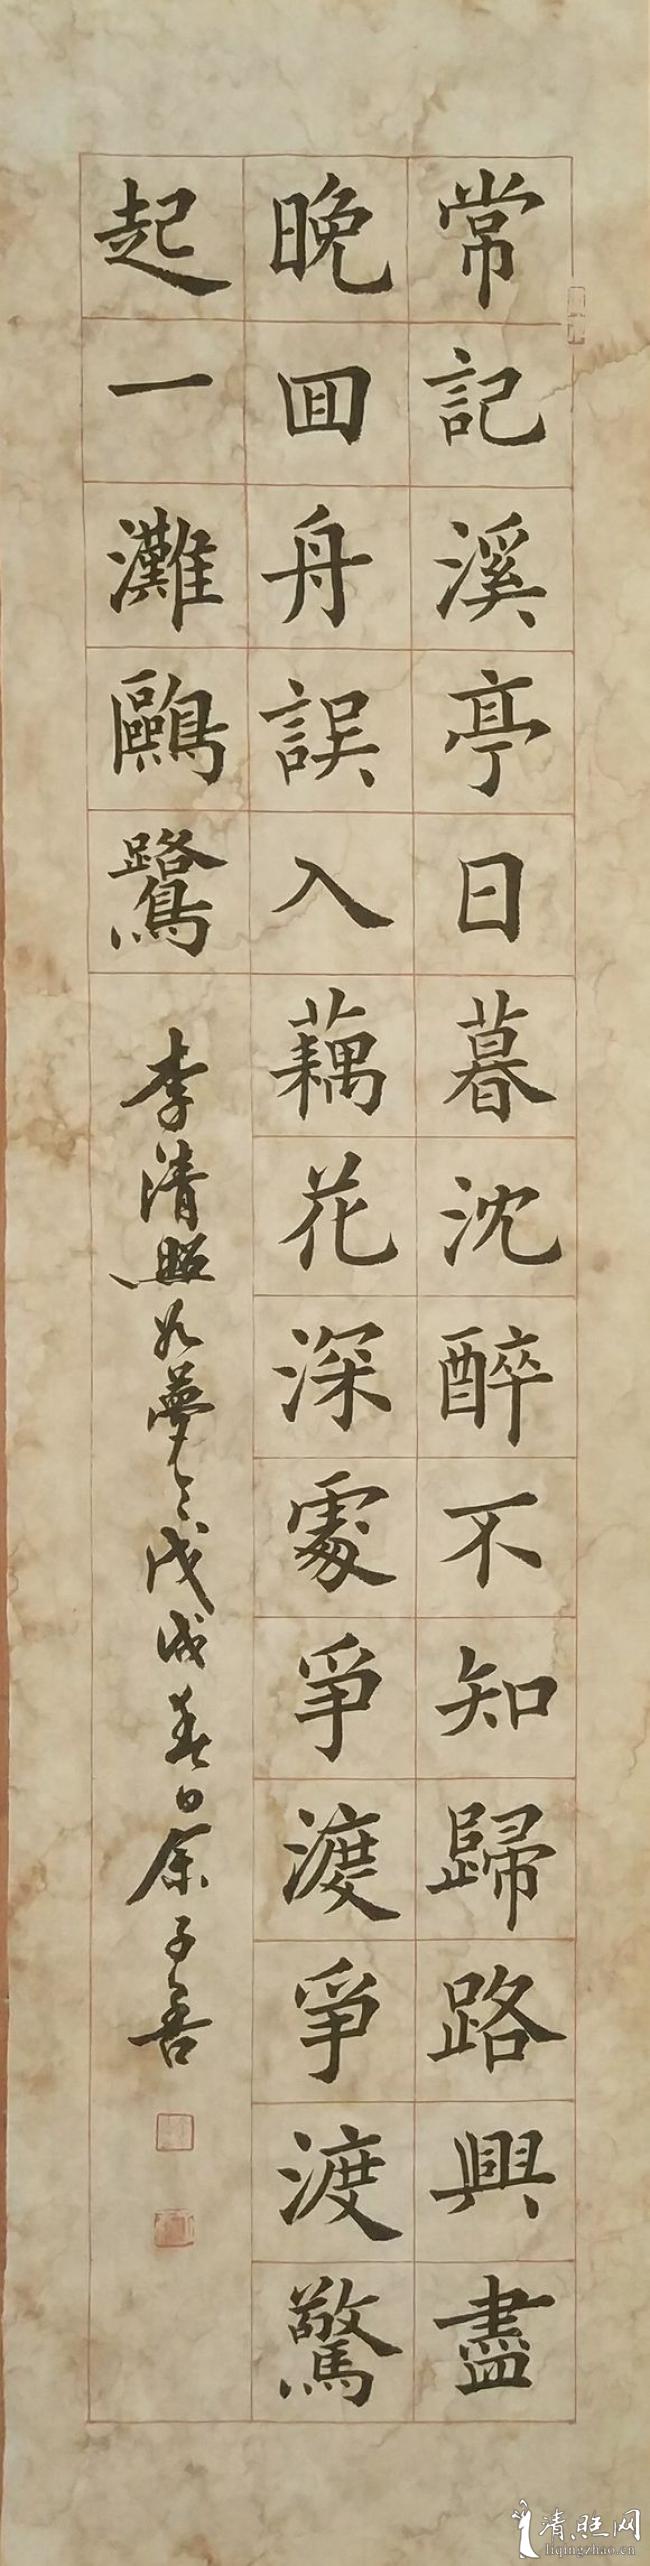 常記溪亭日暮沈醉不知歸路興盡
晚囬舟誤入藕花深處爭渡爭渡驚
起一灘鷗鷺
李清照如夢令戊戌春日余子善
清照网
liqingzhao.cn